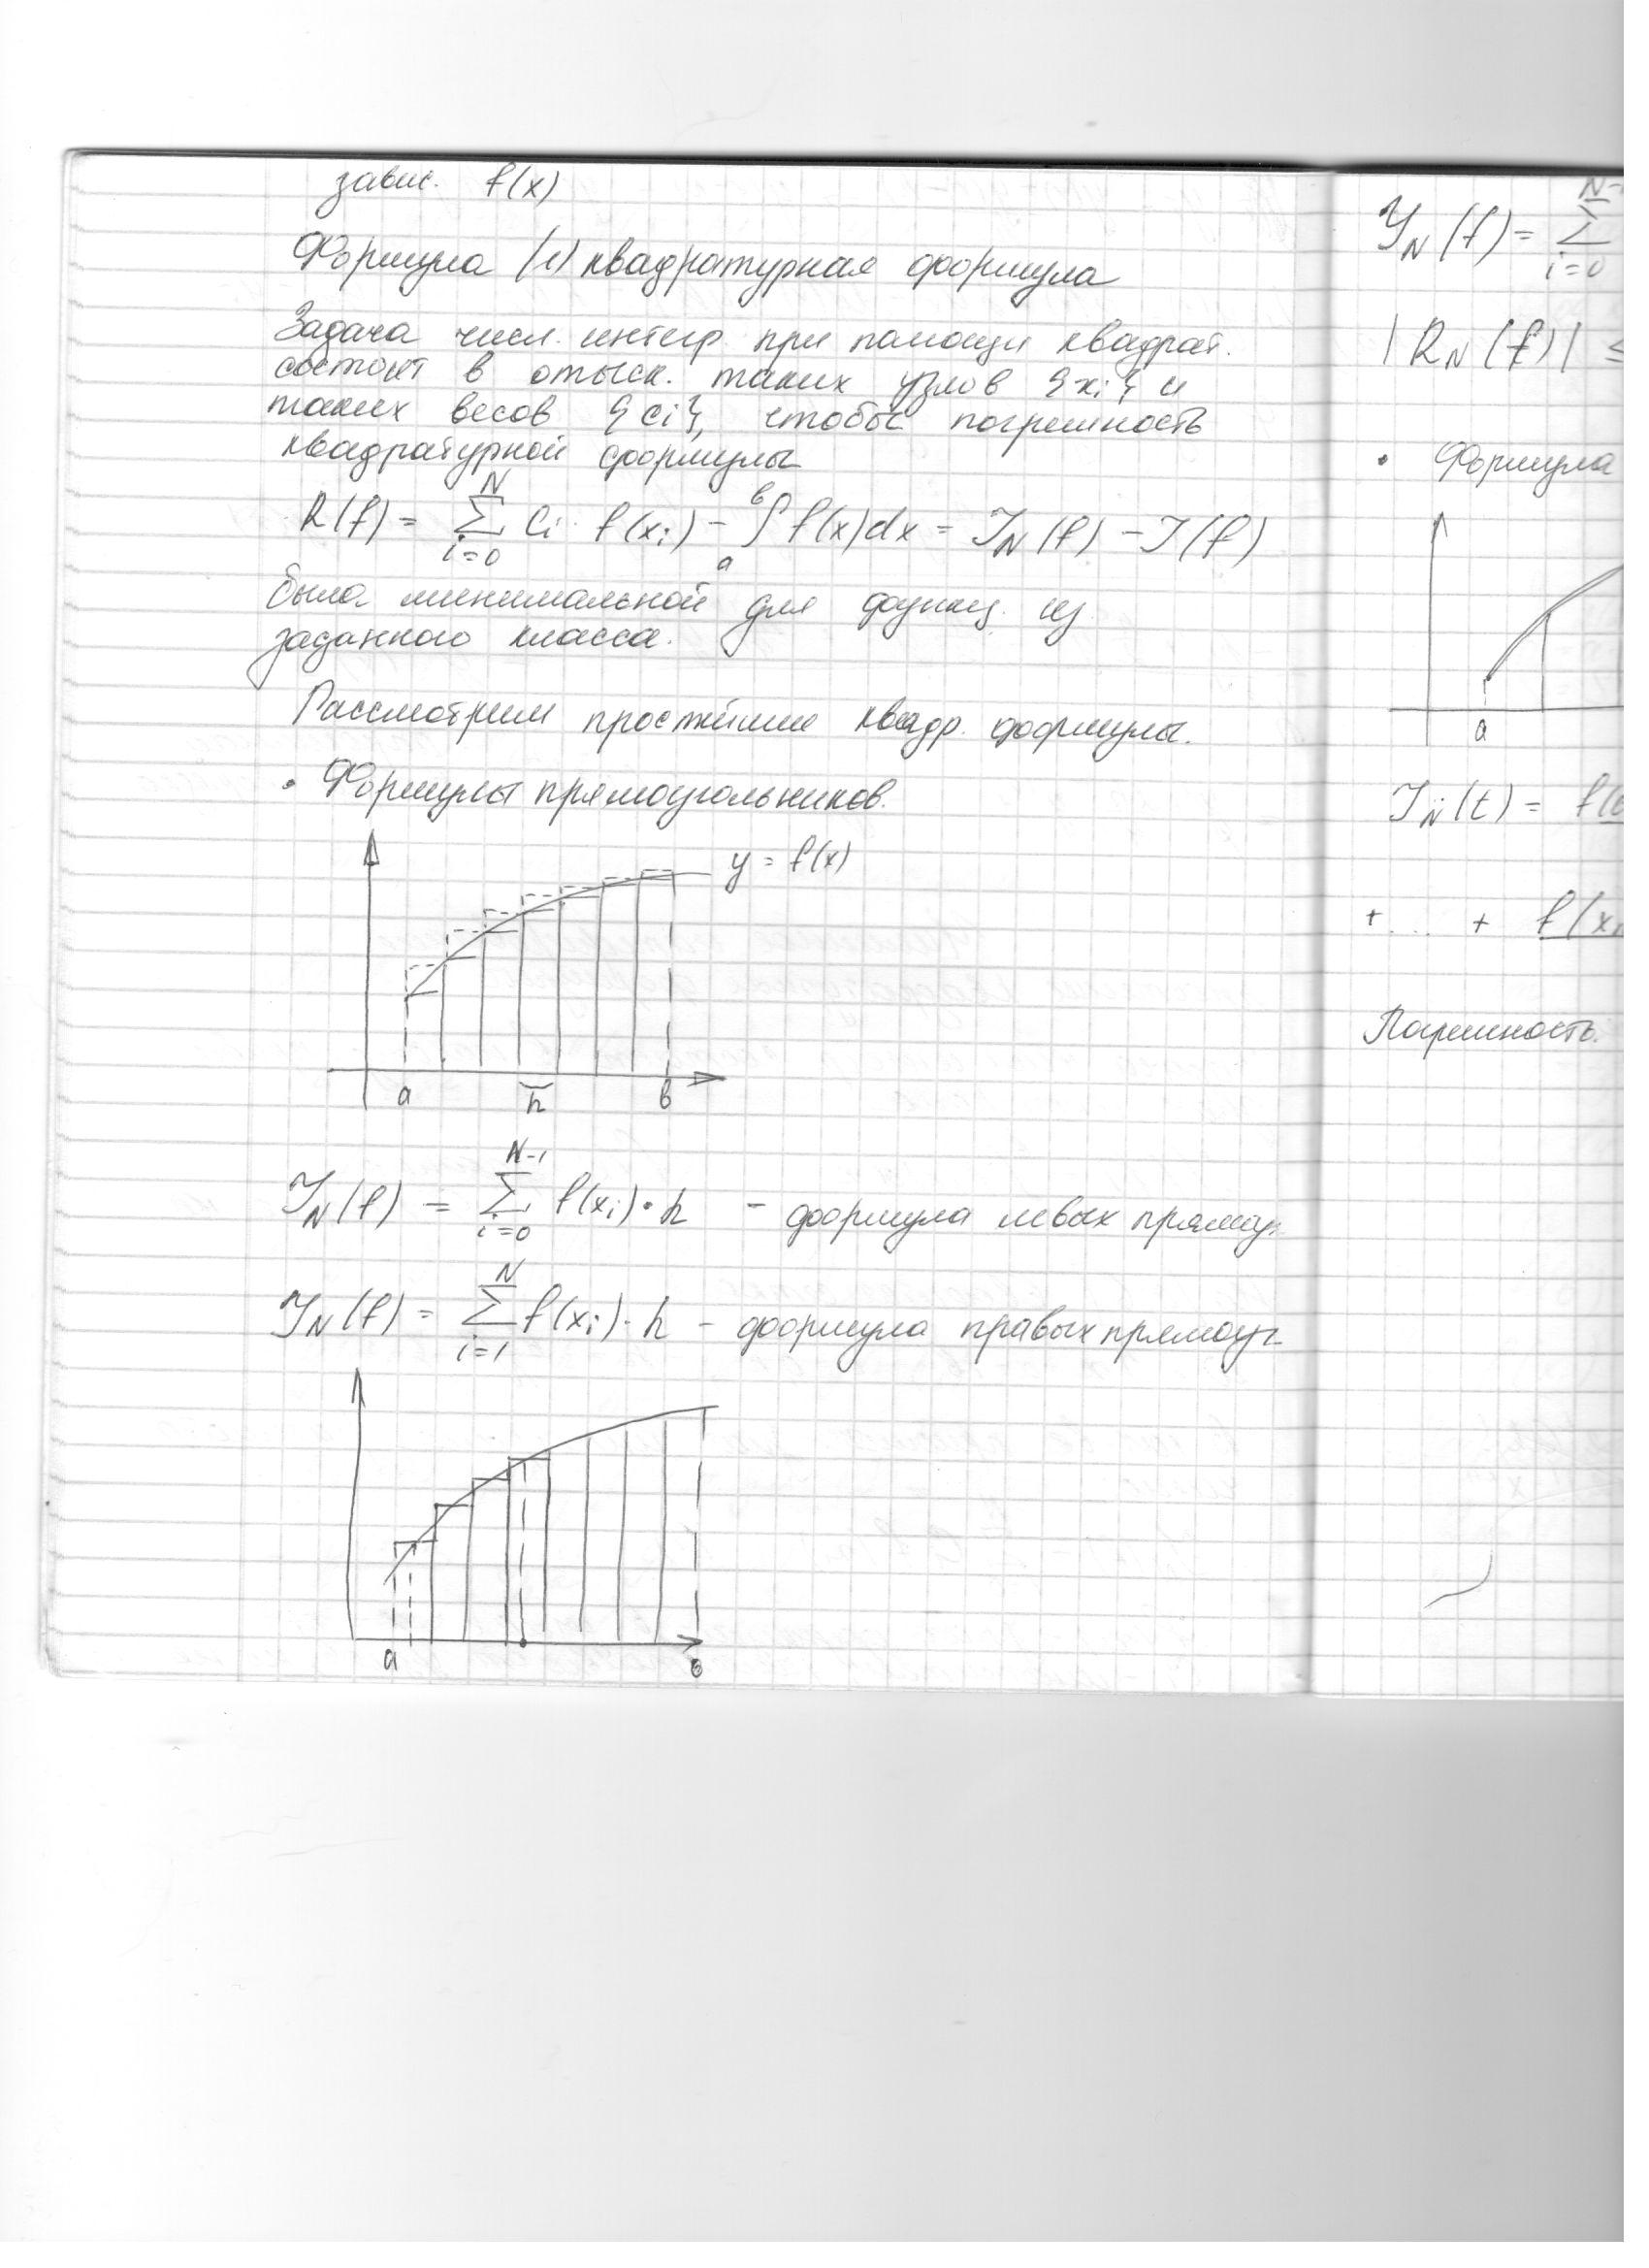 завис. f(x)
Формула (1) квадратурная формула
Задача числ. интегр при помощи квадрат.
состоит в отыск. таких узлов {xi} и
таких весов {ci}, чтобы погрешность
квадратурной формулы
R(f) = ∑_{i=0}^{N} Ci · f(xi) - ∫_a^b f(x)dx = J_N(f) - J(f)
была минимальной для функц. из
заданного класса.
Рассмотрим простейшие квадр. формулы.
• Формулы прямоугольников.
y = f(x)
a h b
J_N(f) = ∑_{i=0}^{N-1} f(xi)·h - формула левых прямоуг
J_N(f) = ∑_{i=1}^{N} f(xi)·h - формула правых прямоуг
a b
J_N(f) = ∑_{i=0}^{N-
|R_N(f)| ≤
• Формула
a
J_N(t) =
+ ... + f(x
Погрешность.